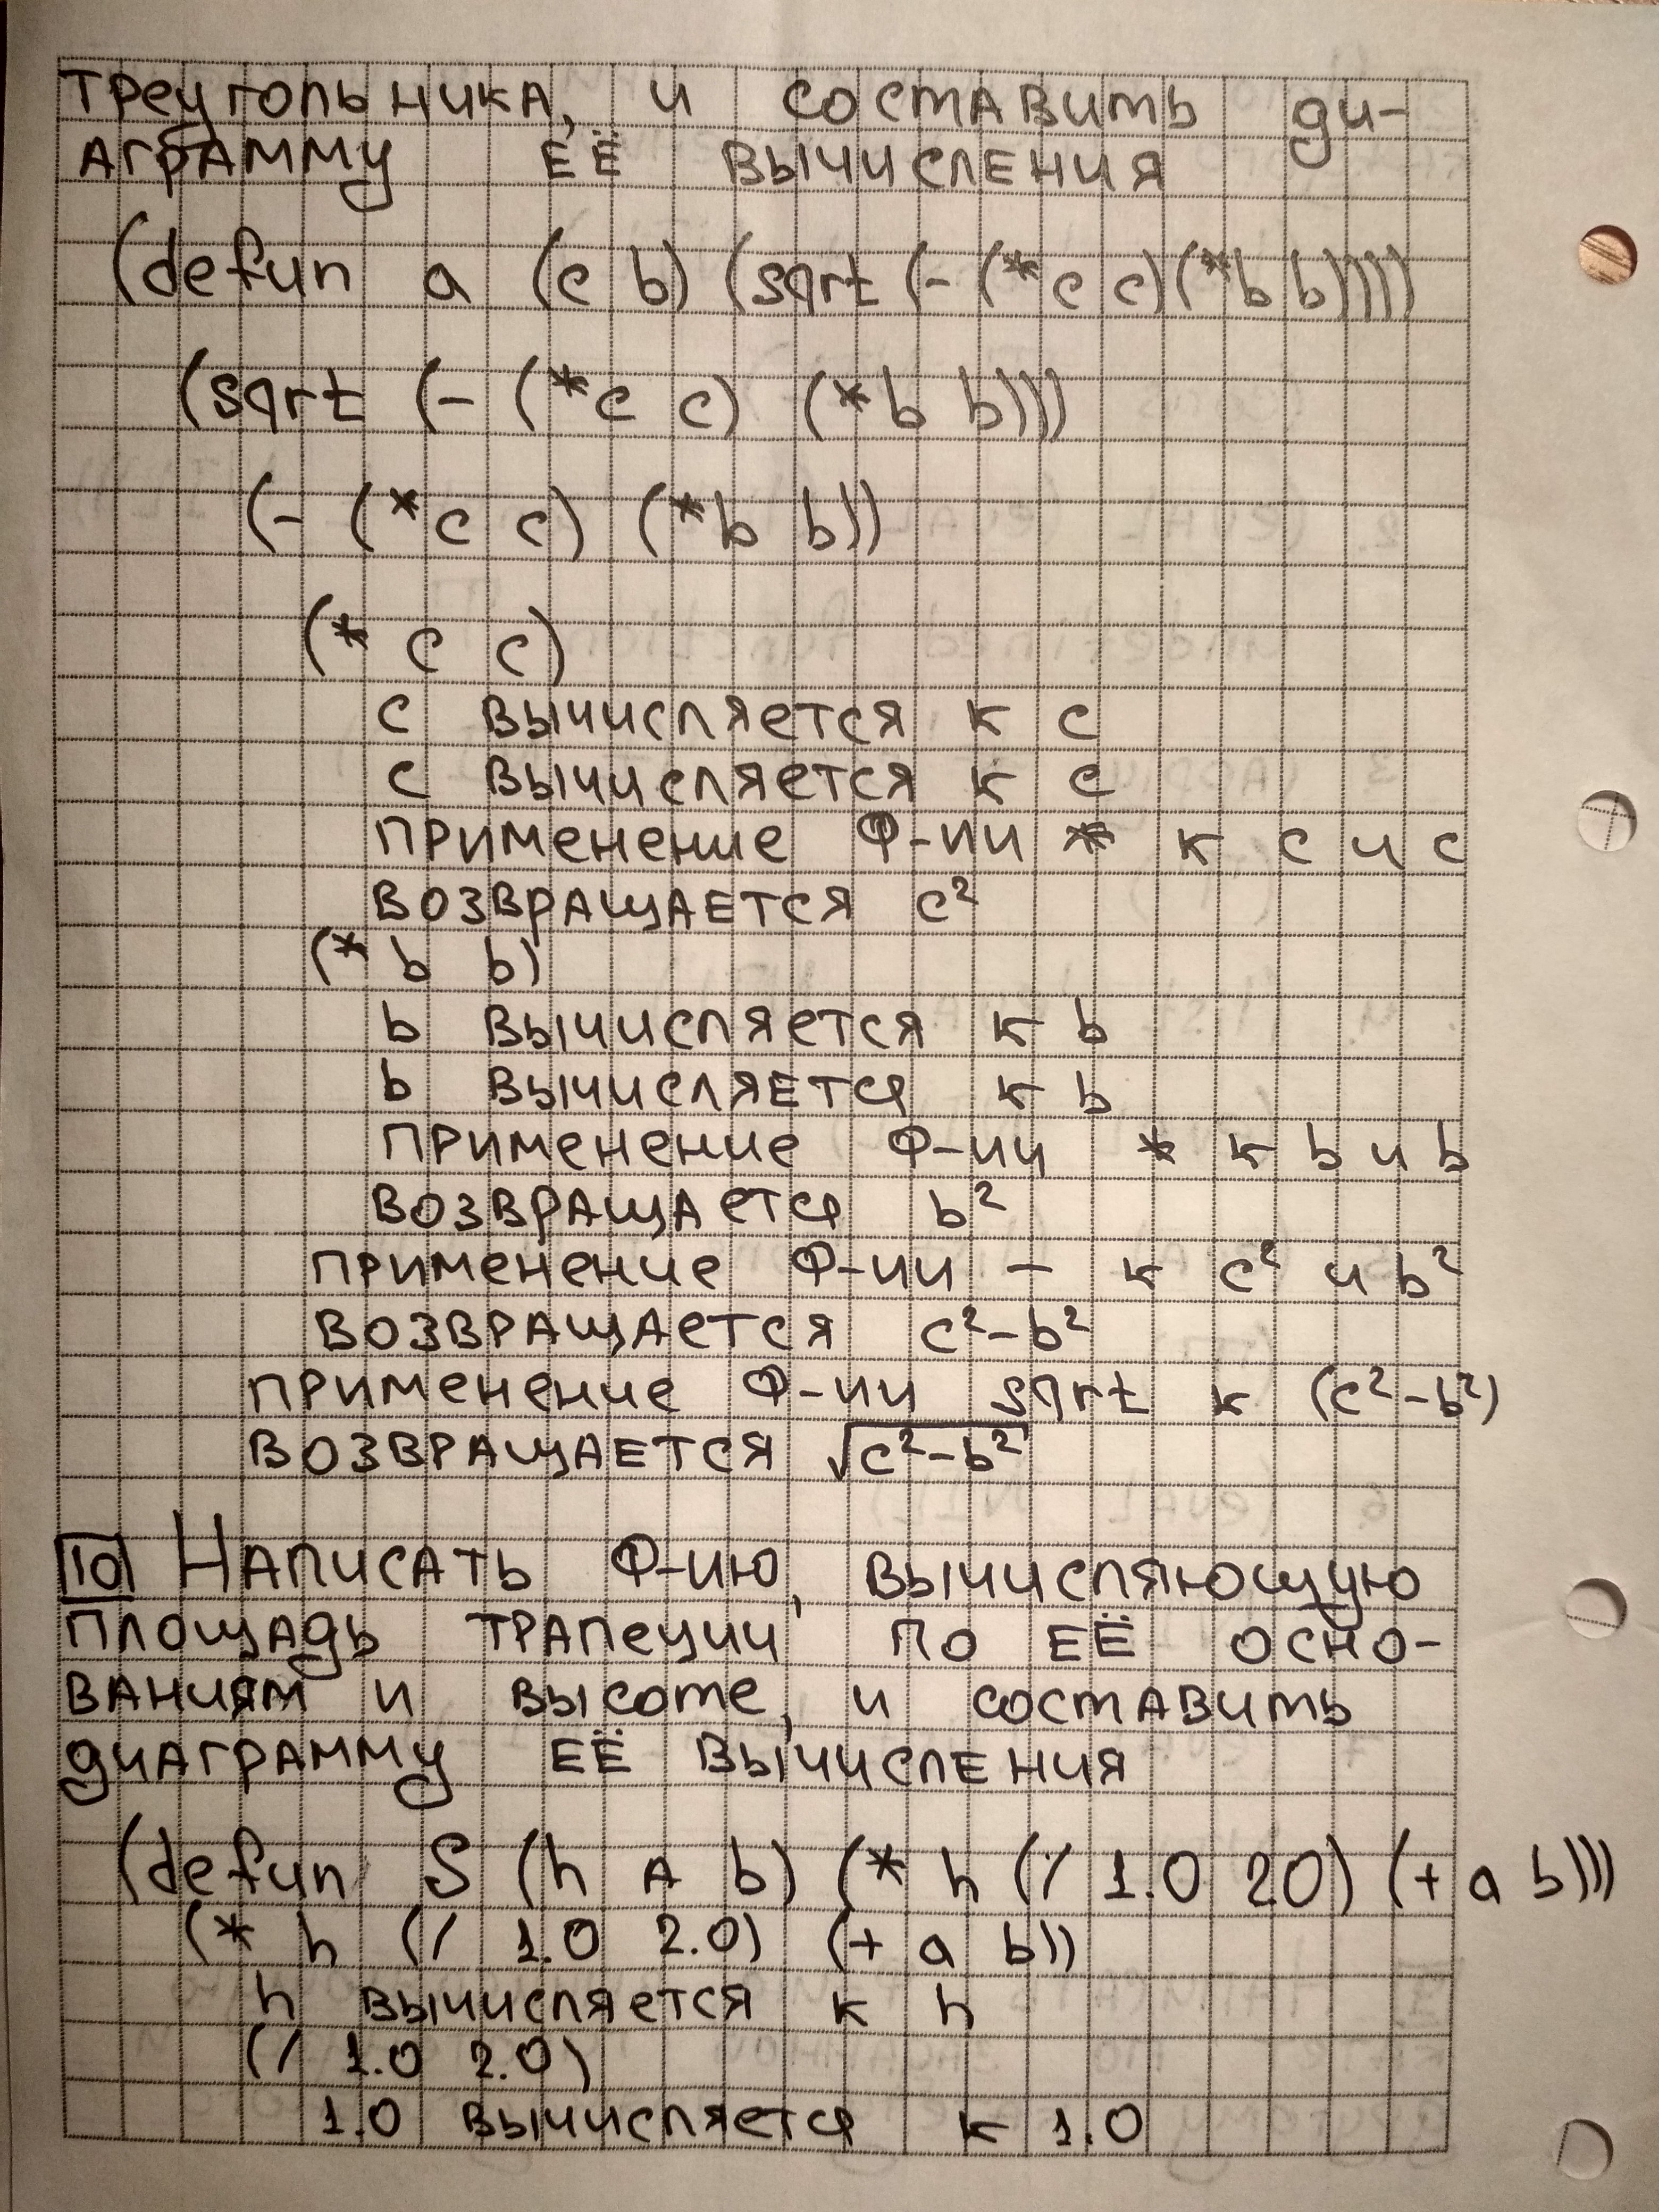 треугольника, и составить ди-
аграмму её вычисления
(defun a (c b) (sqrt (- (*c c)(*b b))))
(sqrt (- (*c c) (*b b)))
(- (*c c) (*b b))
(* c c)
c вычисляется к c
c вычисляется к c
применение ф-ии * к c и c
возвращается c²
(* b b)
b вычисляется к b
b вычисляется к b
применение ф-ии * к b и b
возвращается b²
применение ф-ии - к c² и b²
возвращается c²-b²
применение ф-ии sqrt к (c²-b²)
возвращается √c²-b²
10 Написать ф-ию, вычисляющую
площадь трапеции по её осно-
ваниям и высоте, и составить
диаграмму её вычисления
(defun S (h a b) (* h (/ 1.0 20) (+ a b)))
(* h (/ 1.0 2.0) (+ a b))
h вычисляется к h
(/ 1.0 2.0)
1.0 вычисляется к 1.0